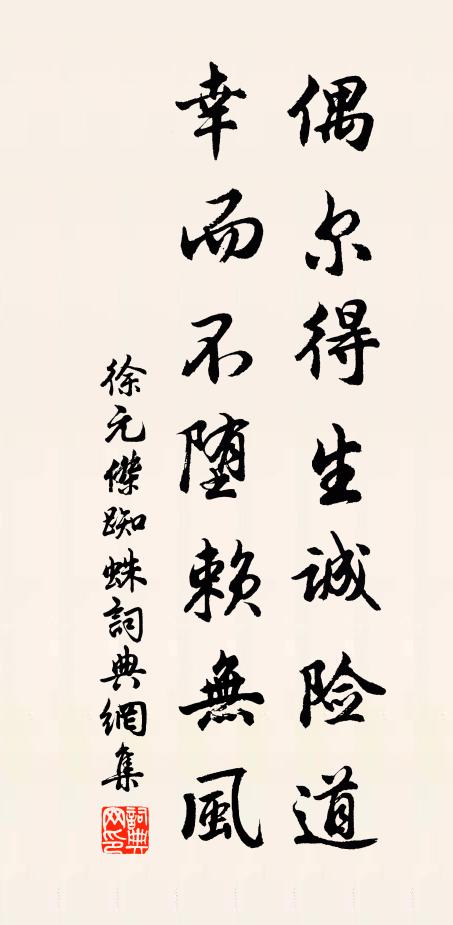 偶尔得生誠险道
幸而不堕赖無風
徐元傑踟蛛詞典網集
詞典網印